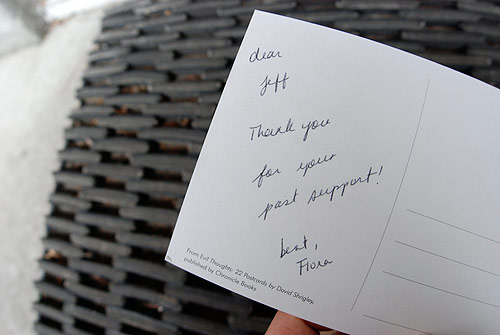 dear
Jeff
Thank you
for your
past support!
best,
Fiona
From Evil Thoughts: 22 Postcards by David Shrigley,
published by Chronicle Books